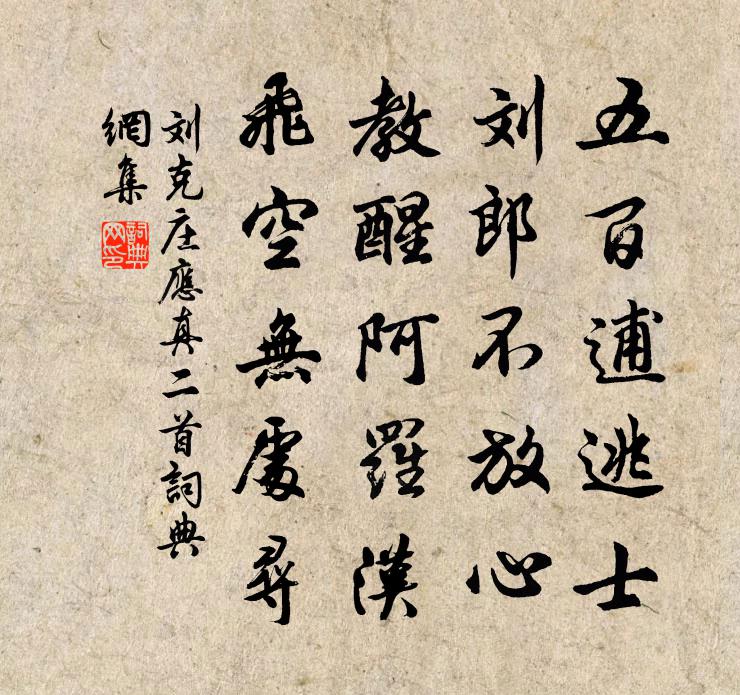 五百逋逃士
刘郎不放心
教醒阿羅漢
飛空無處尋
刘克庄應真二首詞典
網集
詞典
网印